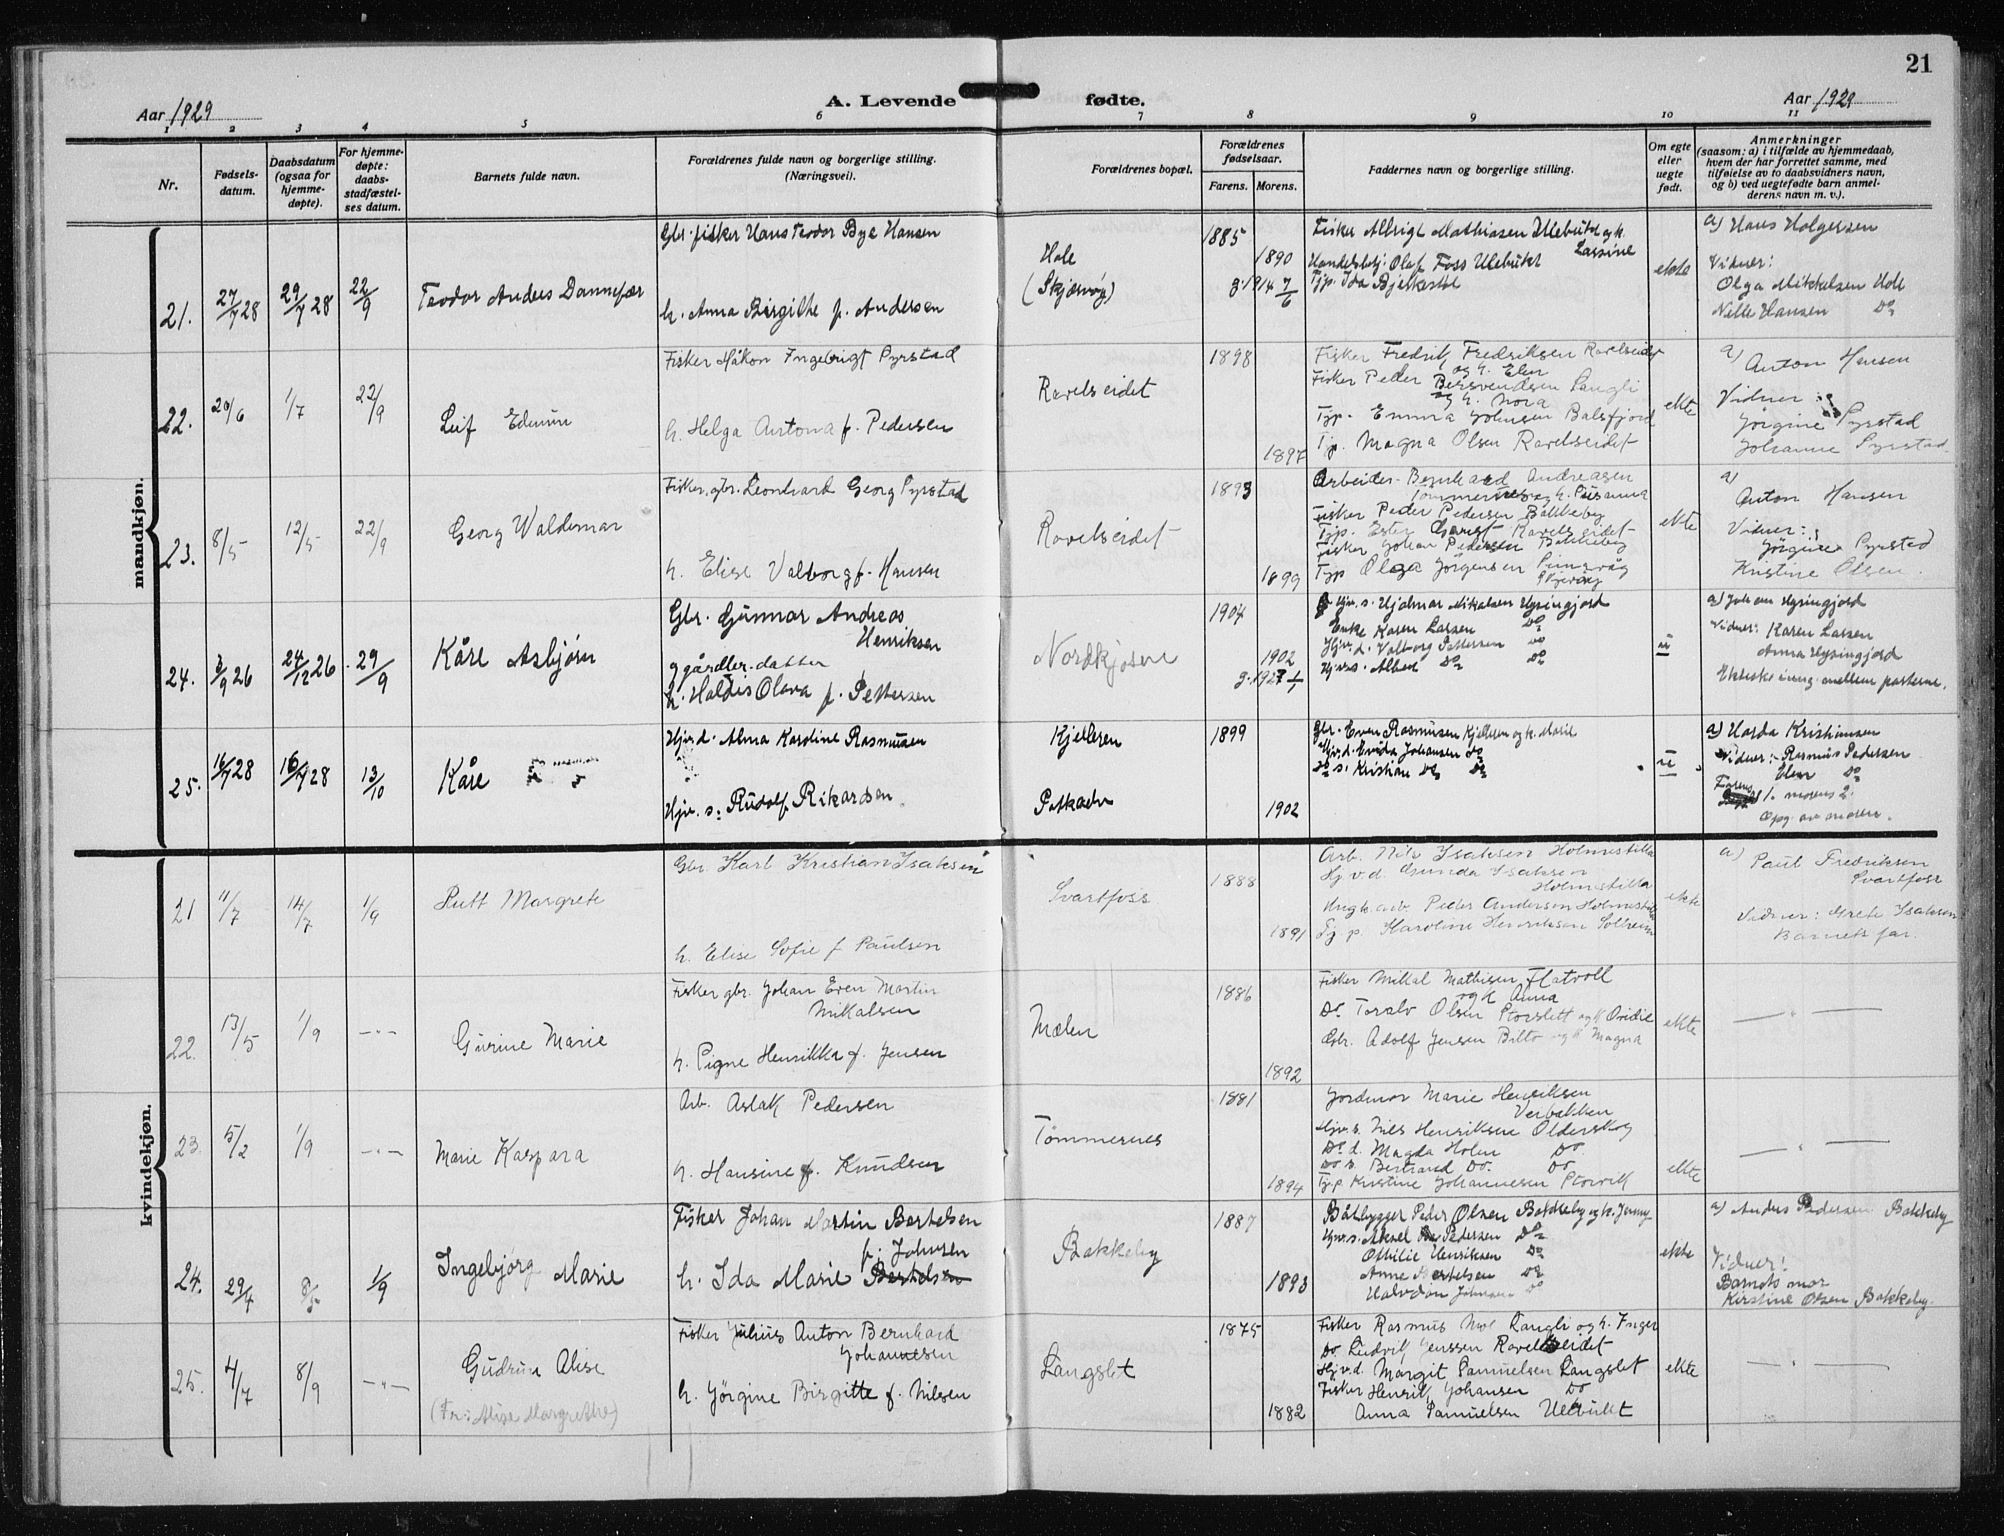 21
Aar 1929
A. Levende fødte.
Aar 1929
1 2 3 4 5 6 7 8 9 10 11
Nr.
Fødsels-
datum.
Daabsdatum
(ogsaa for
hjemme-
døpte).
For hjemme-
døpte:
daabs-
stadfæstel-
ses datum.
Barnets fulde navn.
Forældrenes fulde navn og borgerlige stilling.
(Næringsvei).
Forældrenes bopæl.
Forældrenes
fødselsaar.
Farens. Morens.
Faddernes navn og borgerlige stilling.
Om egte
eller
uegte
født.
Anmerkninger
(saasom: a) i tilfælde av hjemmedaab,
hvem der har forrettet samme, med
tilføielse av to daabsvidners navn,
og b) ved uegtefødte barn anmel-
derens navn m. v.).
mandkjøn.
21. 27/7 28 29/7 28 22/9
Teodor Anders Dannefær
Gbr. fisker Hans Teodor Bye Hansen
h. Anna Birgithe f. Andersen
Hole
(Skjærvøy)
1885
1890
g. 1914 7/6
Fisker Albrigt Mathiasen Ulebukt og h.
Lassine
Handelsbetj. Olaf Foss Ulebukt
Tjp. Ida Bjerkestø
ekte
a) Hans Holgersen
Vidner:
Olga Mikkelsen Hole
Nille Hansen Do
22. 20/6 1/7 22/9
Leif Edmun
Fisker Håkon Ingebrigt Pyrstad
h. Helga Antona f. Pedersen
Ravelseidet
1898
1897
Fisker Fredrik Fredriksen Ravelseidet
og h. Elen
Fisker Peder Bersvendsen Langli
og h. Nora
Tjp. Emma Johnsen Balsfjord
Tjp. Magna Olsen Ravelseidet
ekte
a) Anton Hansen
Vidner:
Jørgine Pyrstad
Johanne Pyrstad
23. 8/5 12/5 22/9
Georg Waldemar
Fisker, gbr. Leonhard Georg Pyrstad
h. Elise Valborg f. Hansen
Ravelseidet
1893
1899
Arbeider Bernhard Andreasen
Tømmernes og h. Susanna
Fisker Peder Pedersen Bakkeby
Tjp. Ester Ravelseidet
Fisker Johan Pedersen Bakkeby
Tjp Olga Jørgensen
Skjervøy
ekte
a)
Anton Hansen
Vidner:
Jørgine Pyrstad
Kristine Olsen.
24. 3/9 26 24/12 26 29/9
Kåre Asbjørn
Gbr. Gunnar Andreas
Henriksen
g gårdbr. datter
h. Haldis Olava f. Pettersen
Nordkjosen
1904
1902
g. 1927 1/1
Hjv. s. Hjalmar Mikalsen Hysingjord
Enke Karen Larsen Do
Hjv. d. Valborg Pettersen Do
Hjv. s. Albert Do Do
u
a) Johan Hysingjord
Vidner: Karen Larsen
Anna Hysingjord
Ekteske inng. mellem parterne.
25. 16/7 28 16/7 28 13/10
Kåre
Hjv. d. Alma Karoline Rasmussen
Hjv. s. Rudolf Rikardsen.
Kjelleren
1899
1902
Gbr. Even Rasmussen Kjelleren og h. Marie
Hjv. d. Enida Johansen Do
Do s. Kristian Do Do
u
a) Harda Kristiansen
Vidner: Rasmus Pedersen
Elen Do
Farens 1. morens 2.
Opg. av moren.
kvindekjøn.
21 11/7 14/7 1/9
Rutt Margrete
Gbr. Karl Kristian Isaksen
h. Elise Sofie f. Paulsen
Svartfoss
1888
1891
Arb. Nils Isaksen Holmestilla
Hj. v. d. Gunda Isaksen
Holmestilla
Ungk. arb. Peder Andersen Holmestilla
Tj. p. Karoline Henriksen Solheim
ekte
a) Paul Fredriksen
Svartfoss
Vidner: Grete Isaksen
Barnets far.
22. 13/5 1/9 -"-
Gurine Marie
Fisker gbr. Johan Even Martin
Mikalsen
h. Signe Henrikka f. Jensen
Mælen
1886
1892
Fisker Mikal Mathisen Flatvoll
og h Anna
Do. Toralv Olsen Storslett og h Ovidie
Gbr. Adolf Jensen Bilto og h Magna
ekte
— " —
23. 5/2 1/9 -"-
Marie Kaspara
Arb. Aslak Pedersen
h. Hansine f. Knudsen
Tømmernes
1881
1894
Jordmor Marie Henriksen
Verbakken
Hjv. s. Nils Henriksen Olderskog
Do. d. Magda Holm Do.
Do. s. Bertrand Do. Do
Tjp Kristine Johannesen Storvik
ekte
— " —
24. 29/4 8/5 1/9
Ingebjørg Marie
Fisker Johan Martin Bertelsen
f. Johnsen
h. Ida Marie Bertelsen
Bakkeby
1887
1893
Båtbygger Peder Olsen Bakkeby og h. Jenny
Hjv. s. Aksel Pedersen Do
Othilie Henriksen Do
Anne Bertelsen Do
Halvdan Johnsen Do
ekte
a) Anders Pedersen Bakkeby
Vidner:
Barnets mor
Kirstine Olsen Bakkeby.
25. 4/7 8/9 -"-
Gudrun Alise
(Før: Alise Margrethe)
Fisker Julius Anton Bernhard
Johannesen
h. Jørgine Birgitte f. Nilsen
Langslet
1875
1882
Fisker Rasmus Moe Langli og h. Inger
Do. Ludvik Jenssen Ravelseidet
Hjv. d. Margit Samuelsen Langslet
Fisker Henrik Johansen Do
Anna Samuelsen Ulebukt
ekte
— " —